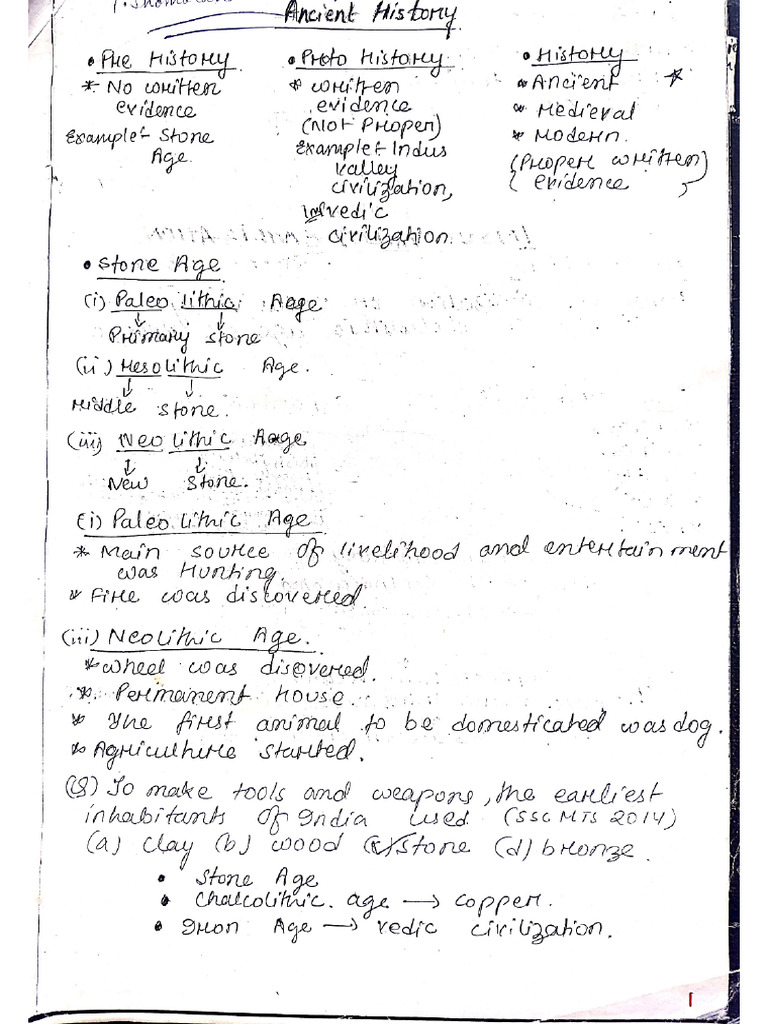 Ancient History
• Pre History
* No written
evidence
Example:- Stone
Age.
• Proto History
* written
evidence
(Not Proper)
Example:- Indus
valley
civilization,
vedic
civilization.
• History
* Ancient *
* Medieval
* Modern.
(Proper written)
( evidence )
• Stone Age
(i) Paleo lithic Age
↓ ↓
Primary stone
(ii) Mesolithic Age.
↓ ↓
Middle stone.
(iii) Neo lithic Age
↓ ↓
New Stone.
(i) Paleo lithic Age
* Main source of livelihood and entertainment
was Hunting.
* Fire was discovered.
(iii) Neolithic Age.
* wheel was discovered.
* Permanent house.
* The first animal to be domesticated was dog.
* Agriculture started.
(Q) To make tools and weapons, the earliest
inhabitants of India used (SSC MTS 2014)
(a) clay (b) wood (c) stone (d) bronze.
• Stone Age
• Chalcolithic. age → copper.
• Iron Age → vedic civilization.
1